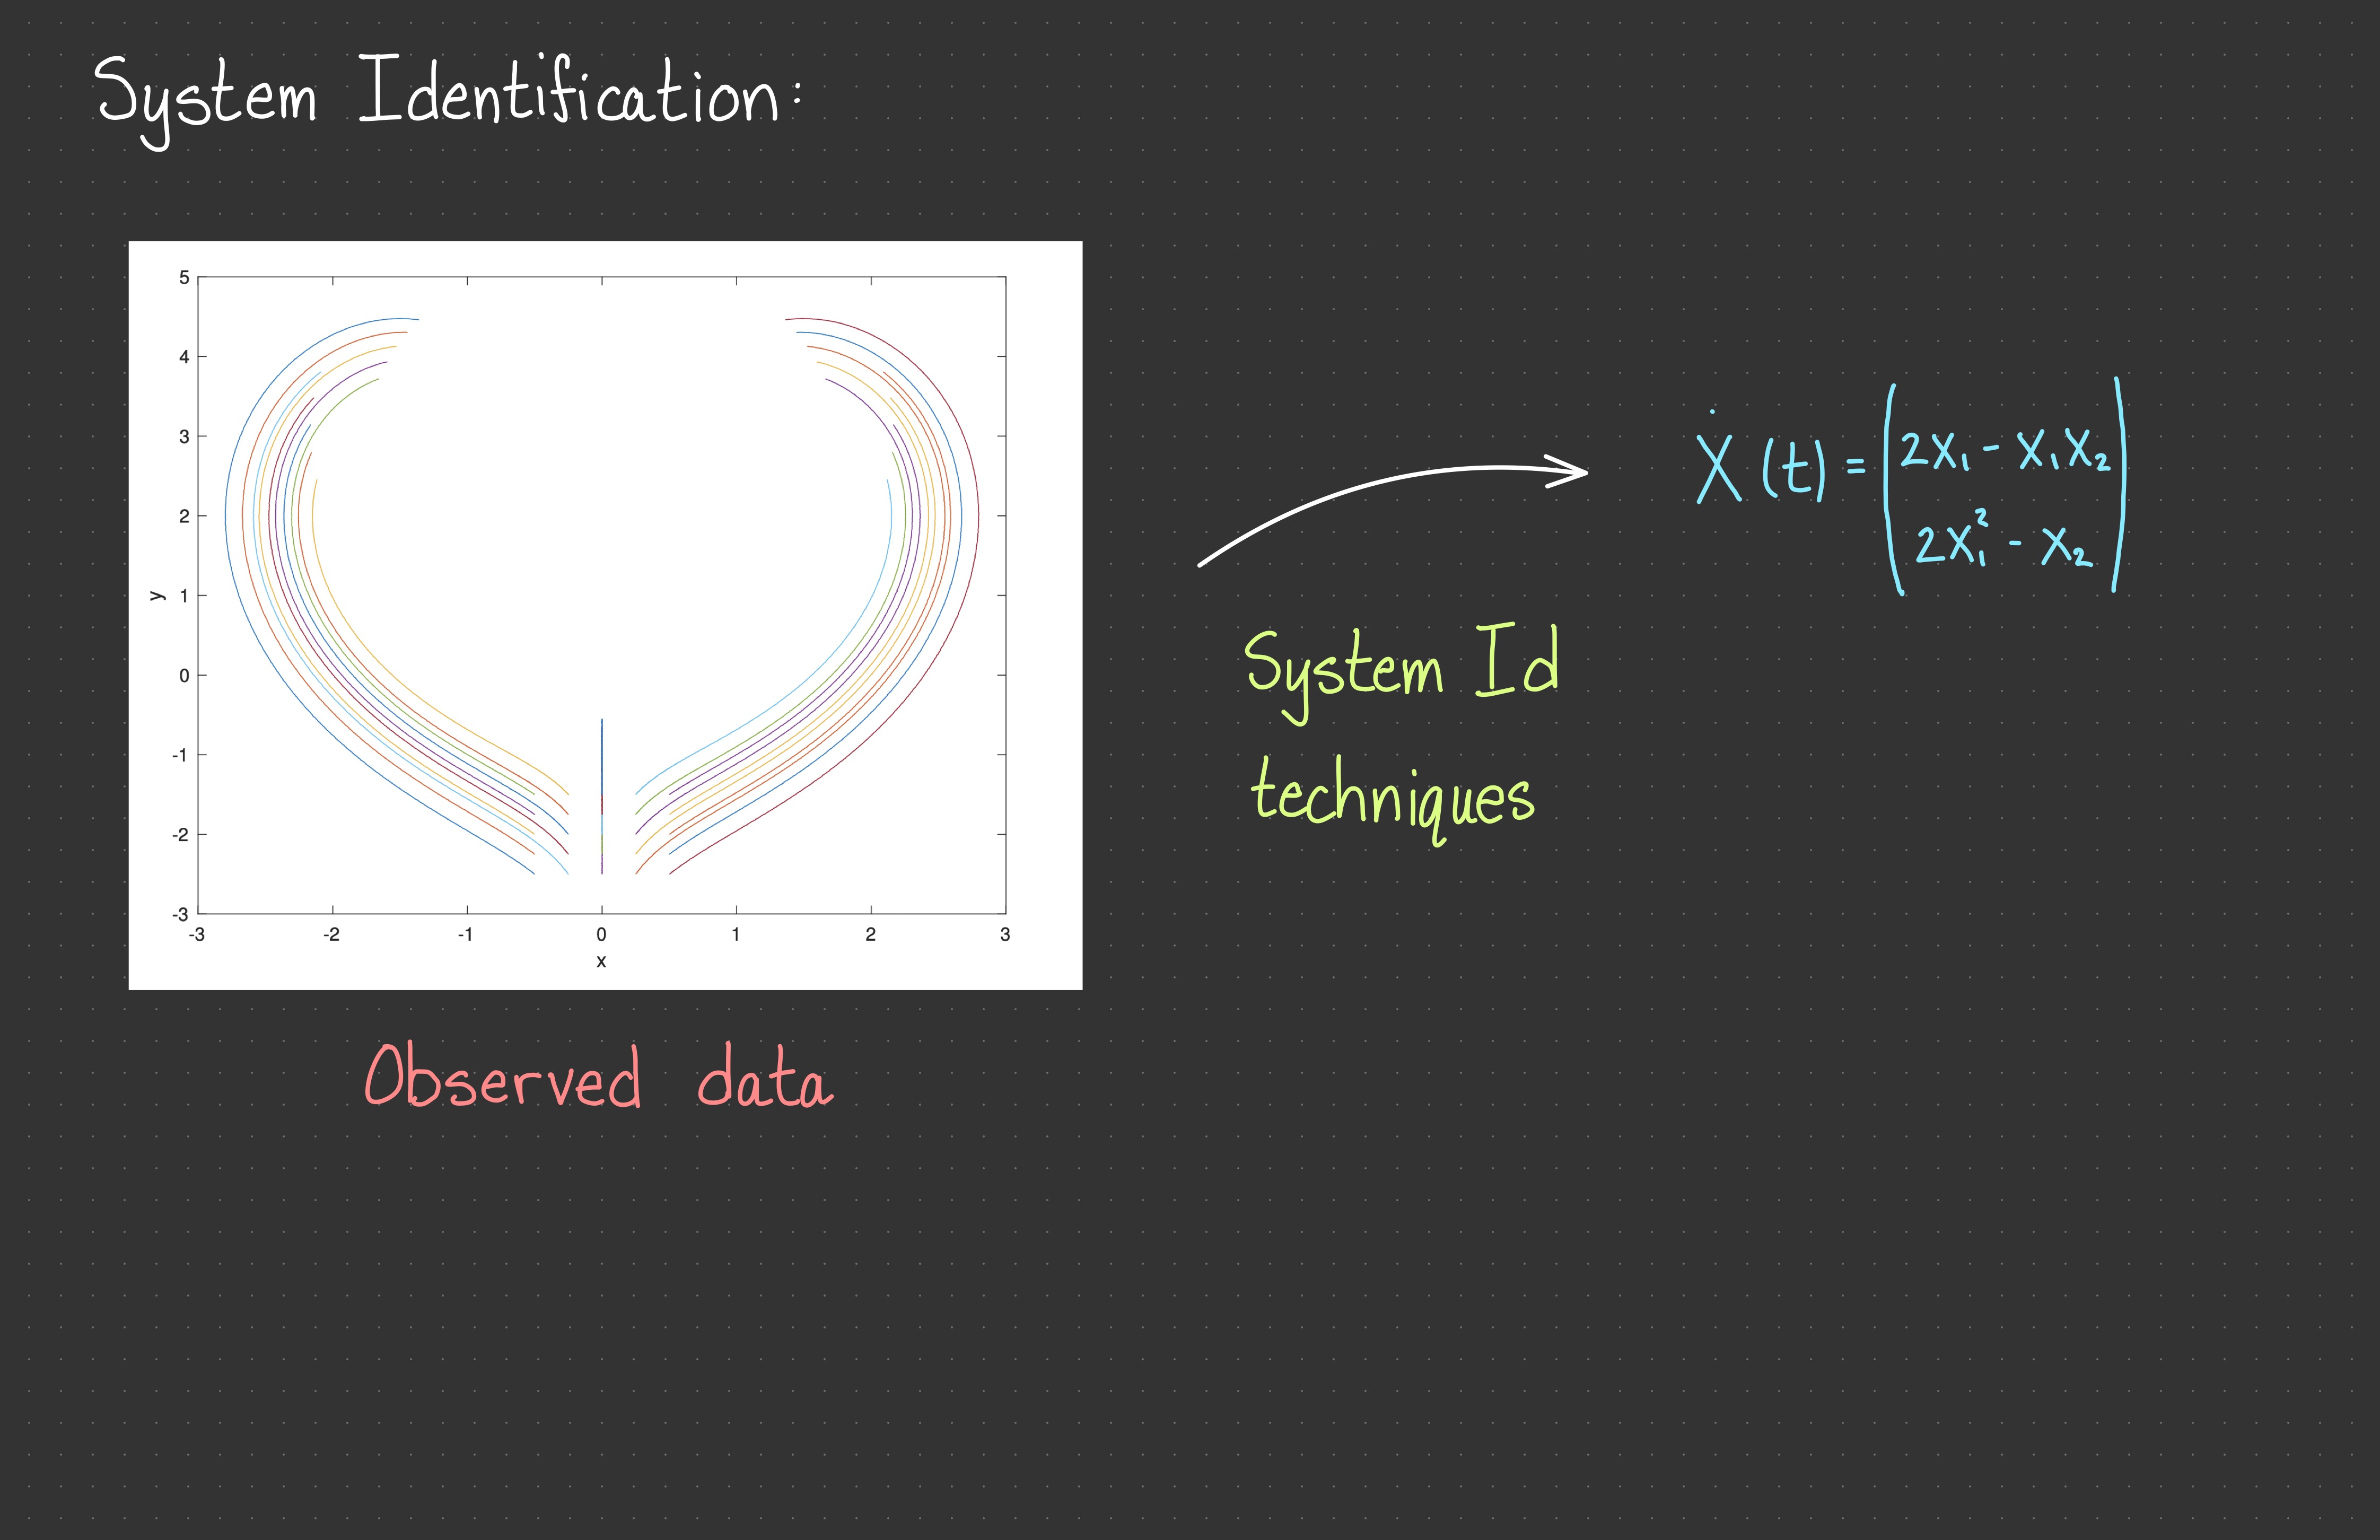 System Identification:
5
4
3
2
1
0
-1
-2
-3
y
-3 -2 -1 0 1 2 3
x
Observed data
System Id
techniques
Ẋ(t) = (2x₁ - x₁x₂
2x₁² - x₂)